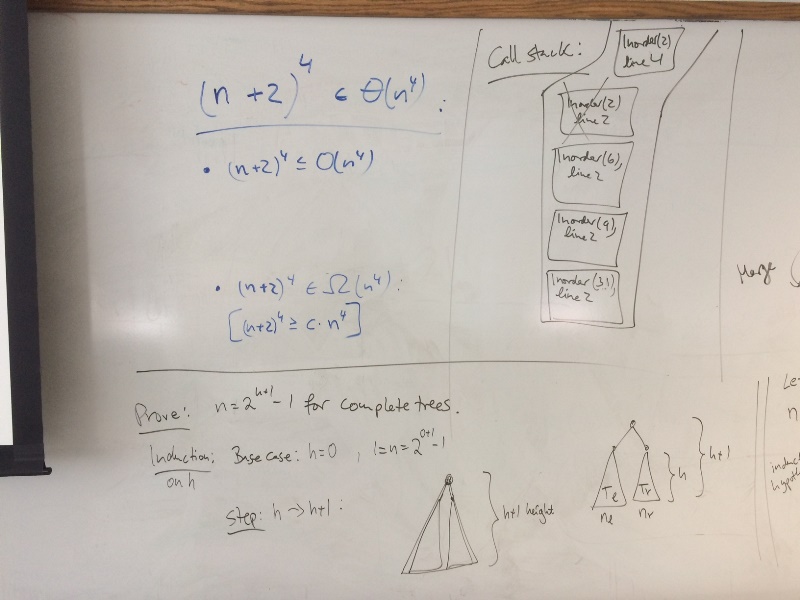 (n+2)⁴ ∈ Θ(n⁴):
• (n+2)⁴ ≤ O(n⁴)
• (n+2)⁴ ∈ Ω(n⁴):
[(n+2)⁴ ≥ c·n⁴]
Call stack:
Inorder(2)
line 4
Inorder(2)
line 2
Inorder(6),
line 2
Inorder(9),
line 2
Inorder(31),
line 2
Merge
Prove: n=2^(h+1)-1 for complete trees.
Induction: Base case: h=0, 1=n=2^(0+1)-1
on h
Step: h→h+1:
h+1 height
Tℓ Tr
nℓ nr
h
h+1
n